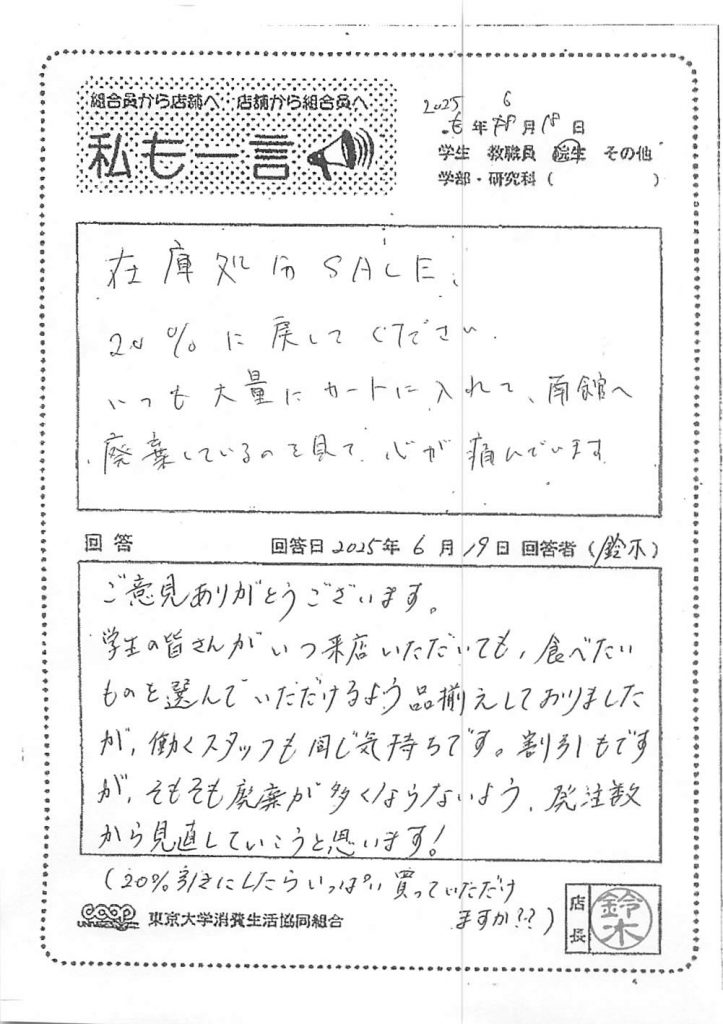 組合員から店舗へ 店舗から組合員へ
私も一言
2025 6
年 月18日
学生 教職員 院生 その他
学部・研究科( )
在庫処分SALE、
20%に戻してください.
いつも大量にカートに入れて、南館へ
廃棄しているのを見て、心が痛んでいます
回答 回答日2025年6月19日 回答者(鈴木)
ご意見ありがとうございます。
学生の皆さんがいつ来店いただいても、食べたい
ものを選んでいただけるよう品揃えしておりました
が、働くスタッフも同じ気持ちです。割引もです
が、そもそも廃棄が多くならないよう、発注数
から見直していこうと思います!
(20%引きにしたらいっぱい買っていただけ
ますか??)
coop 東京大学消費生活協同組合
店長 鈴木